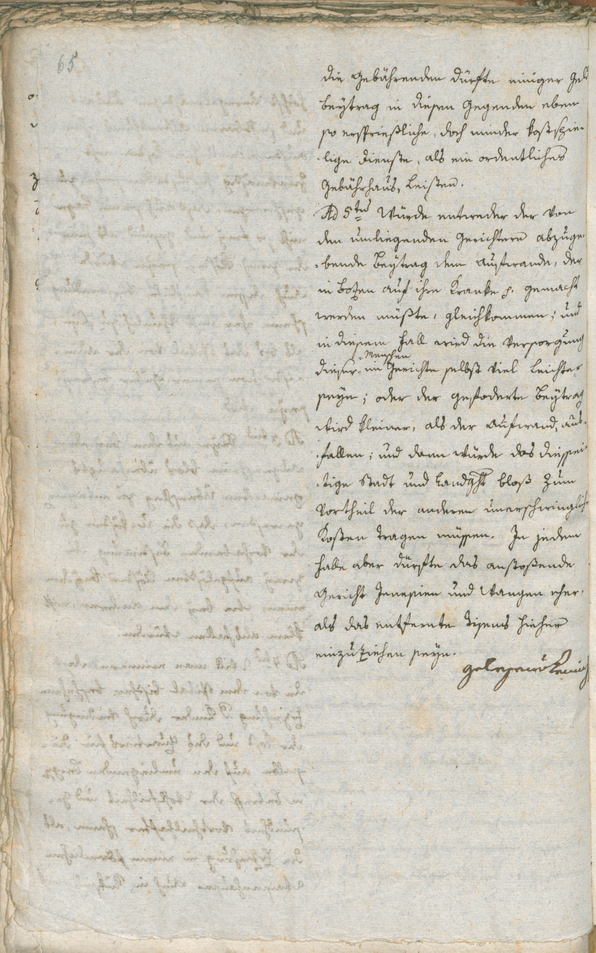 65
die Gebährenden dürfte einiger Geld
beÿtrag in diesen Gegenden eben
so ersprießliche, doch minder kostspie-
-lige Dienste, als ein ordentliches
Gebährhaus, leisten.
Ad 5tus Würde entweder der von
den umliegenden Gerichtern abzuge-
-bende Beÿtrag dem Aufwande, der
in Botzen auf ihre Kranke gemacht
werden müßte, gleichkommen; und
in diesem Fall wird die Versorgung
dieser Menschen im Gerichte selbst viel leichter
seÿn; oder der geforderte Beÿtrag
wird kleiner, als der Aufwand, aus-
-fallen; und dann würde das diessei-
-tige Stadt und Landgcht bloß zum
Vortheil der anderen unerschwinglich
Kosten tragen müssen. In jedem
Falle aber dürfte das anstoßende
Gericht Jenesien und Wangen eher,
als das entfernte Tisens hieher
einzuziehen seÿn.